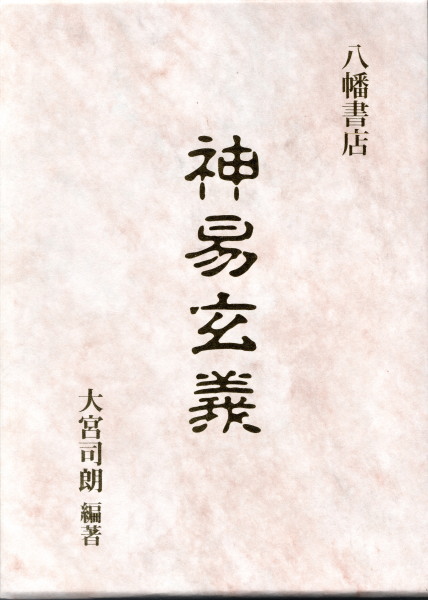 八幡書店
神易玄義
大宮司朗 編著